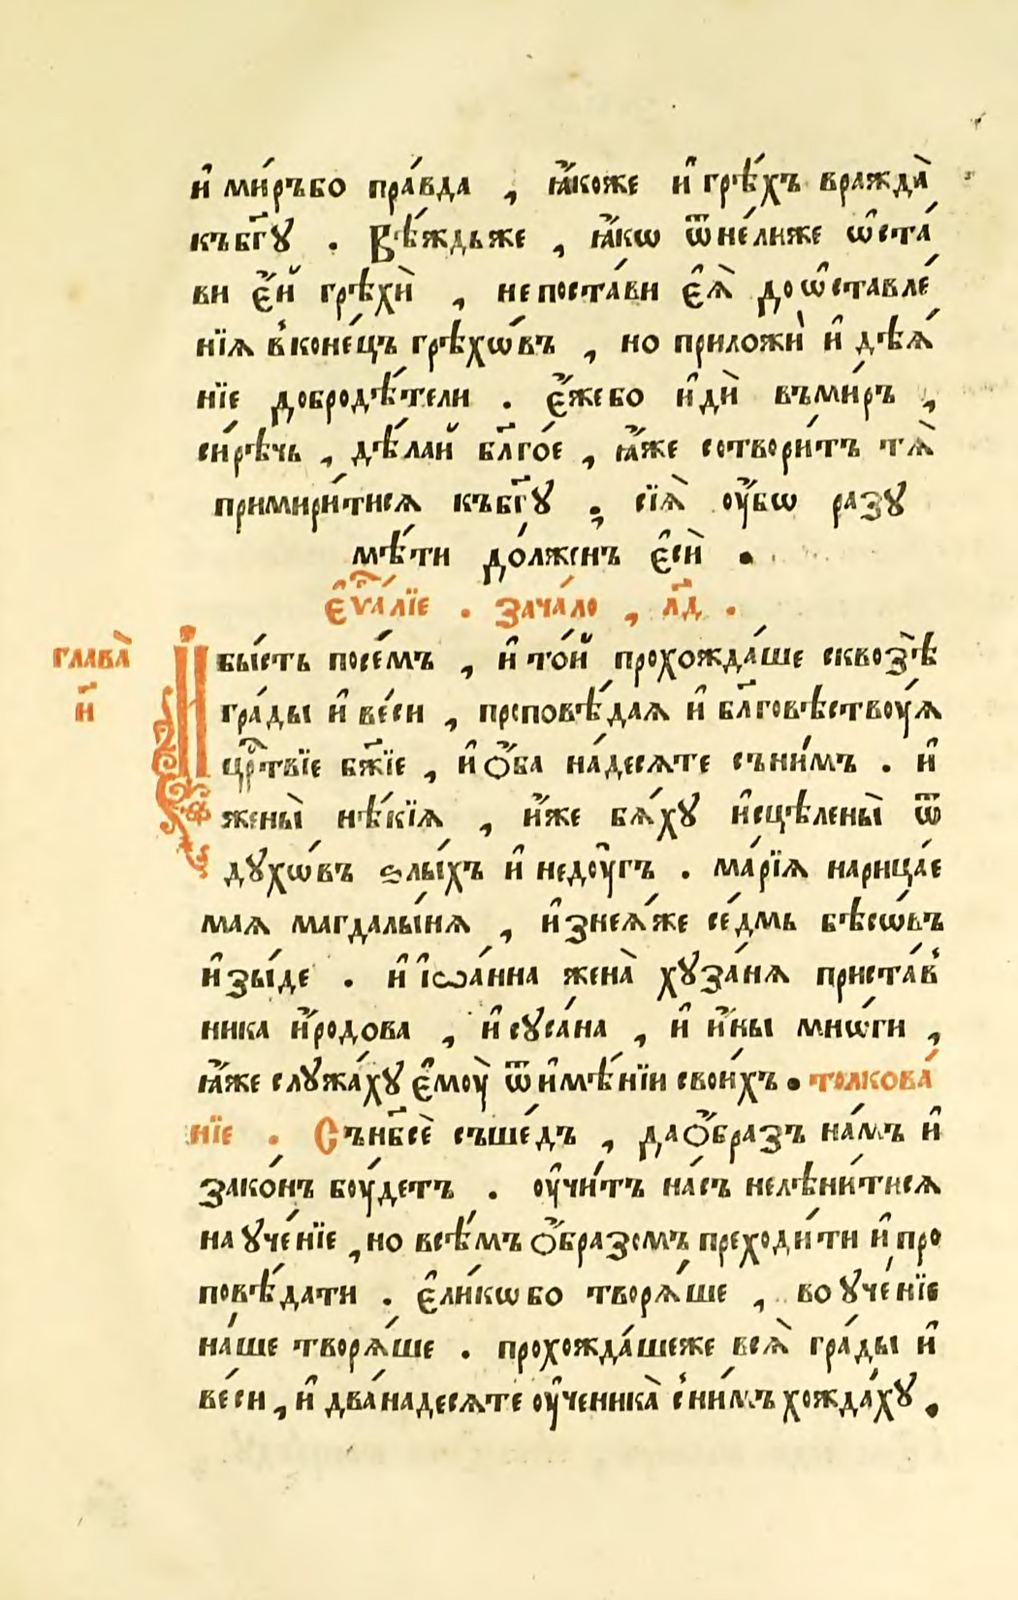 и҆ ми́ръбо пра́вда , ꙗ҆́коже и҆ грѣ́хъ вражда̀
къбг҃ꙋ . Вѣ́ждьже , ꙗ҆́кѡ ѿне́лиже ѡ҆ста́
ви є҆́й грѣхѝ , непоста́ви є҆ѧ̀ доѡ҆ставле́
нїѧ в̾коне́цъ грѣхѡ́въ , но приложѝ и҆ дѣѧ́
нїе добродѣ́тели . є҆́жебо и҆дѝ въми́ръ ,
си́рѣчь , дѣ́лай бл҃го́е , ꙗ҆́же сотвори́тъ тѧ̀
примири́тисѧ къбг҃ꙋ , сїѧ̀ оу҆́бѡ разꙋ
мѣ́ти до́лженъ є҆сѝ .
є҆ѵⷢ҇а́лїе . зача́ло , л҃д .
глава̀
и҃
И бы́сть посе́мъ , и҆ то́й прохожда́ше сквозѣ̀
гра́ды и҆ ве́си , проповѣ́даѧ и҆ бл҃говѣствоу́ѧ
црⷭ҇твїе бж҃їе , и҆ ѻ҆́ба на́десѧте съни́мъ . и҆
жены̀ нѣ́кїѧ , и҆́же бѧ́хꙋ и҆сцѣлены̀ ѿ
дꙋхѡ́въ ѕлы́хъ и҆ недоу҆́гъ . ма́рїѧ нарица́е
маѧ магдалы́нѧ , и҆знеѧ́же се́дмь бѣсѡ́въ
и҆зы́де . и҆ і҆ѡа́нна жена̀ хꙋза́нѧ приста́в̾
ника и҆́родова , и҆ сꙋса́на , и҆ и҆́ны мнѡ́ги ,
ꙗ҆́же слꙋжа́хꙋ є҆моу̀ ѿи҆мѣ́нїи свои́хъ . толкова́
нїе . Сънб҃сѐ съше́дъ , даѻ҆́бразъ на́мъ и҆
зако́нъ боу́детъ . оу҆чи́тъ на́съ нелѣни́тисѧ
наꙋче́нїе , но всѣ́мъ ѻ҆́бразомъ преходи́ти и҆ про
повѣ́дати . є҆ли́кѡбо творѧ́ше , воꙋче́нїе
на́ше творѧ́ше . прохожда́шеже всѧ̀ гра́ды и҆
ве́си , и҆ двана́десѧте оу҆ченика̀ с̾ни́мъ хожда́хꙋ .